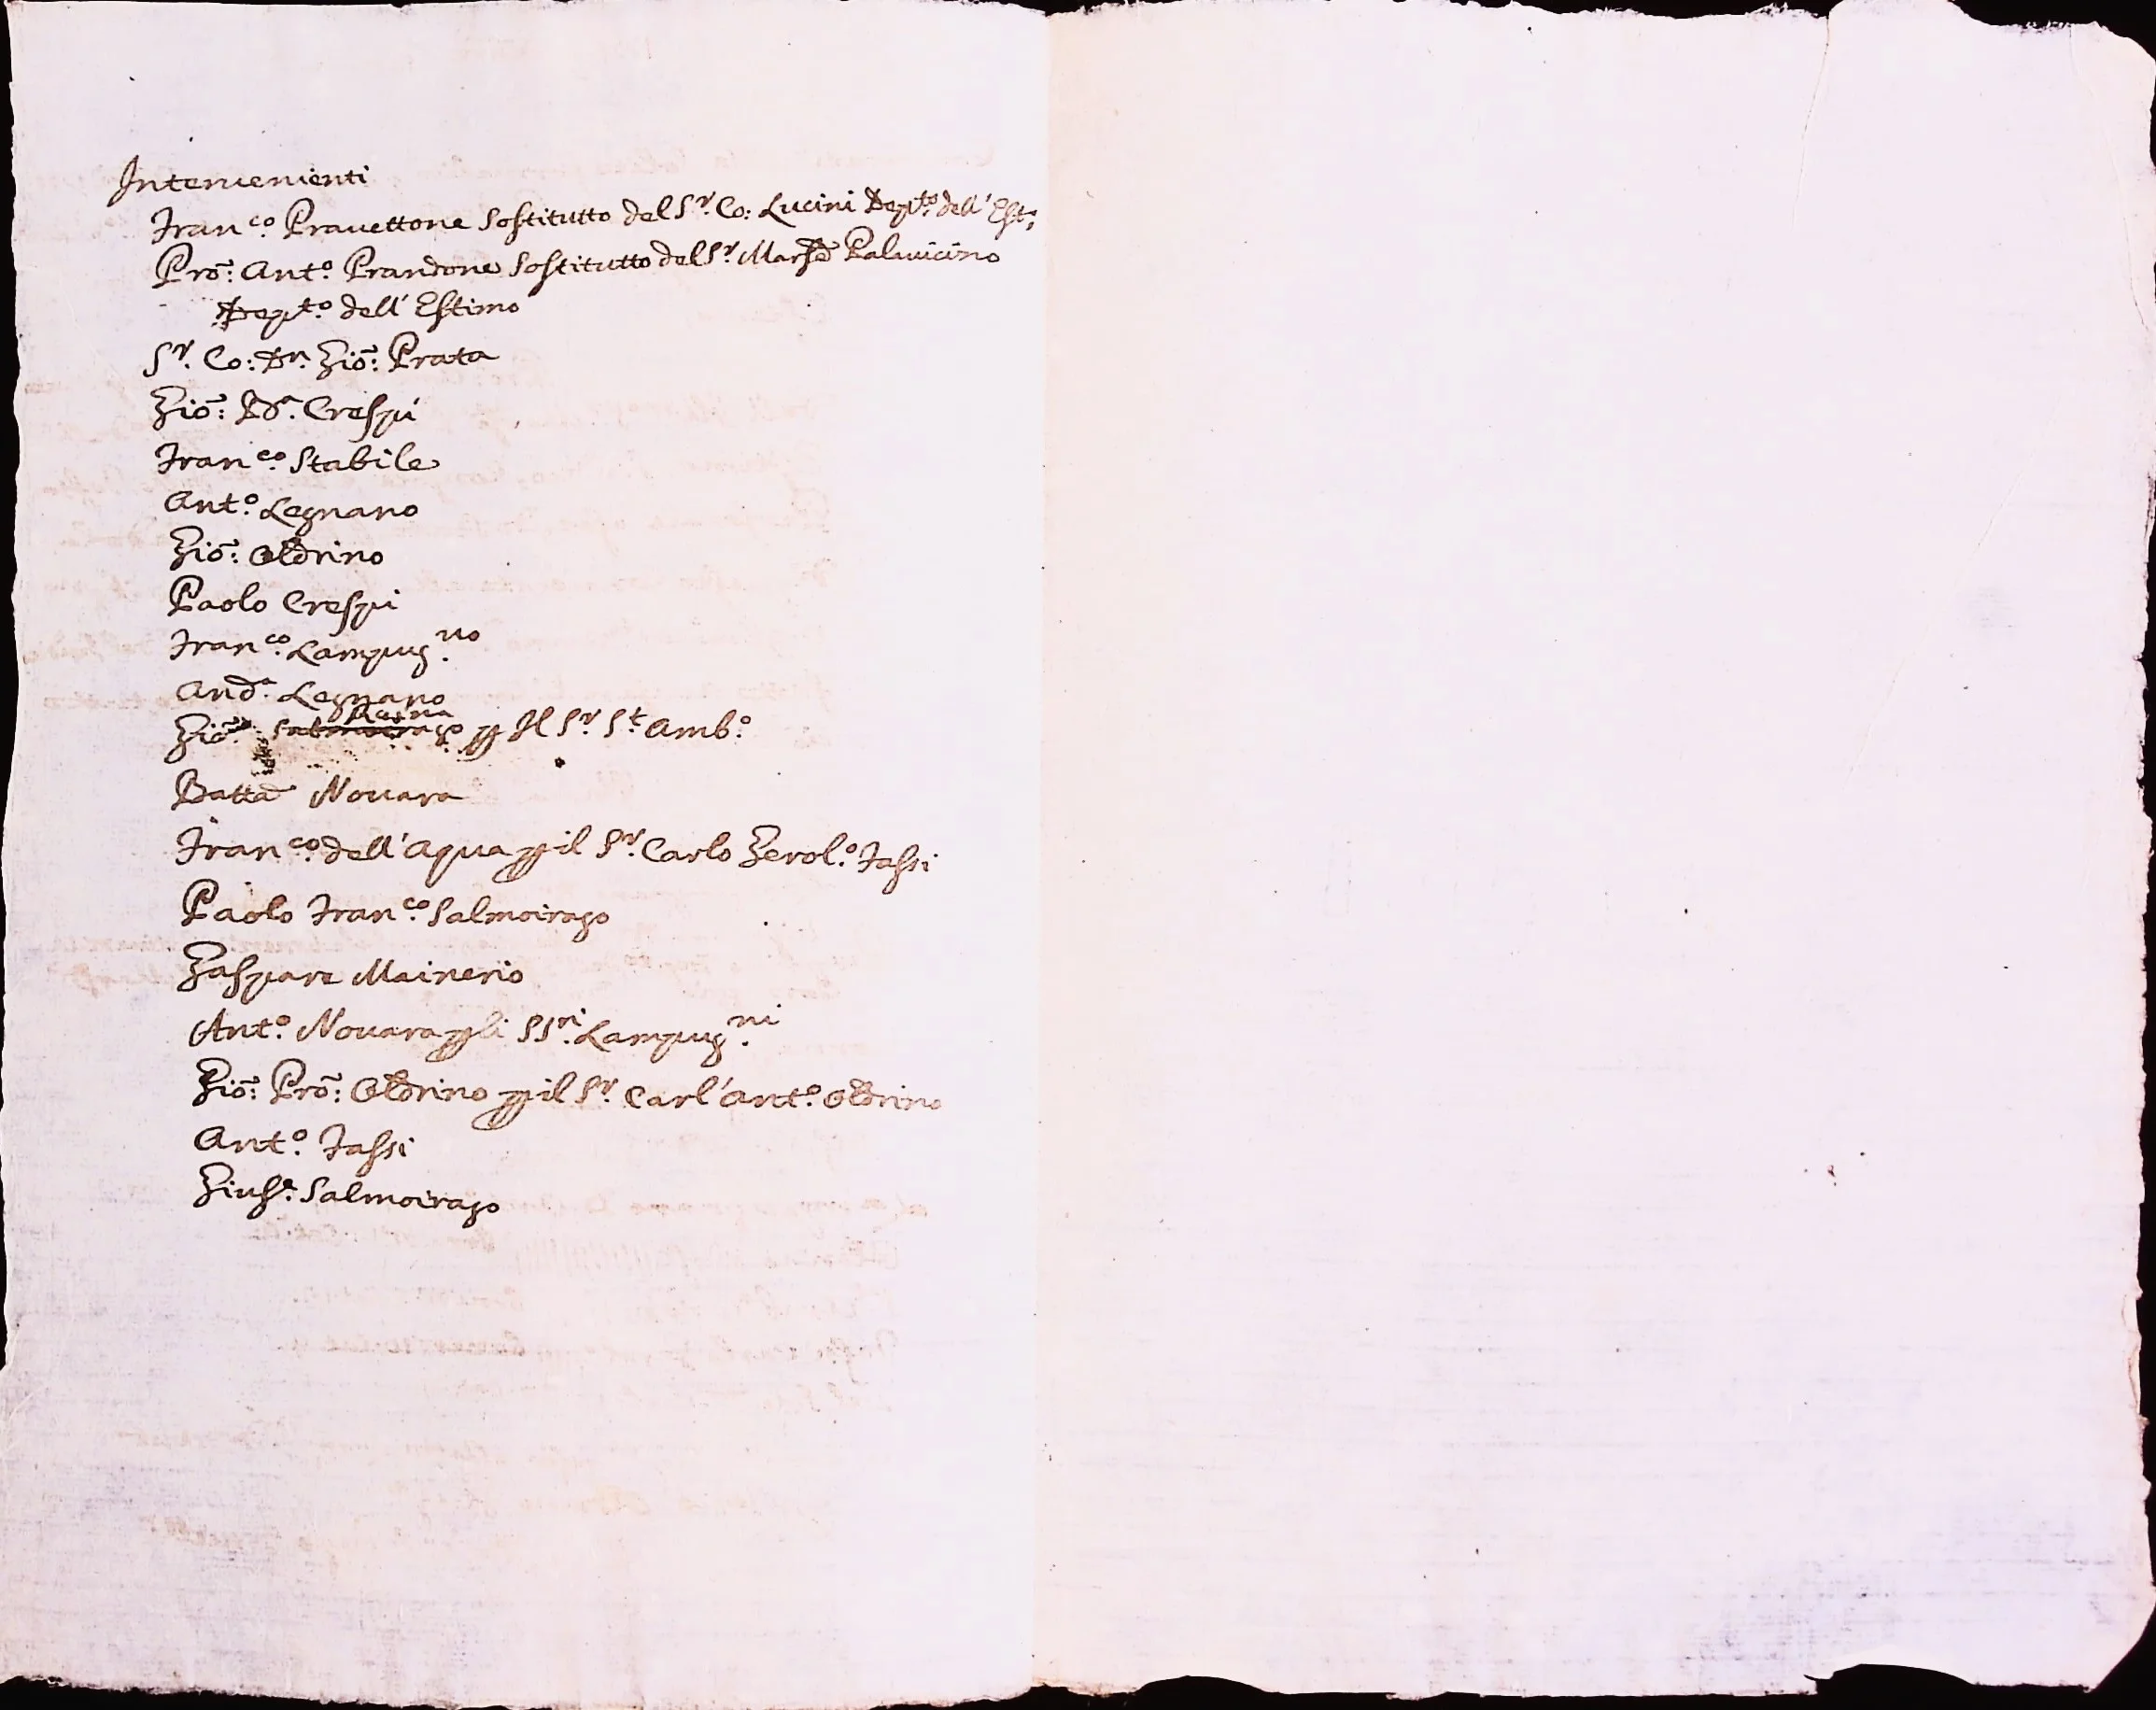 Interuenienti
Fran.co Prauettone Sostitutto del S.r Co: Lucini Dep.to dell'Est.o
Pro: Ant.o Prandone Sostitutto del S.r Marse Palauicino
Dep.to dell'Estimo
S.r Co: Dn. Gio: Prata
Gio: Bta. Crespi
Fran.co Stabile
Ant.o Legnano
Gio: Oldrino
Paolo Crespi
Fran.co Lampug.no
And.a Legnano
Gio: Salmoirago p Il S.r S.t Amb.o
Batta Nouara
Fran.co dell'Aqua p il S.r Carlo Gerol.o Tassi
Paolo Fran.co Salmoirago
Gaspare Mainerio
Ant.o Nouara p li SS.ri Lampug.ni
Gio: Pro: Oldrino p il S.r Carl'Ant.o Oldrino
Ant.o Tassi
Gius.e Salmoirago